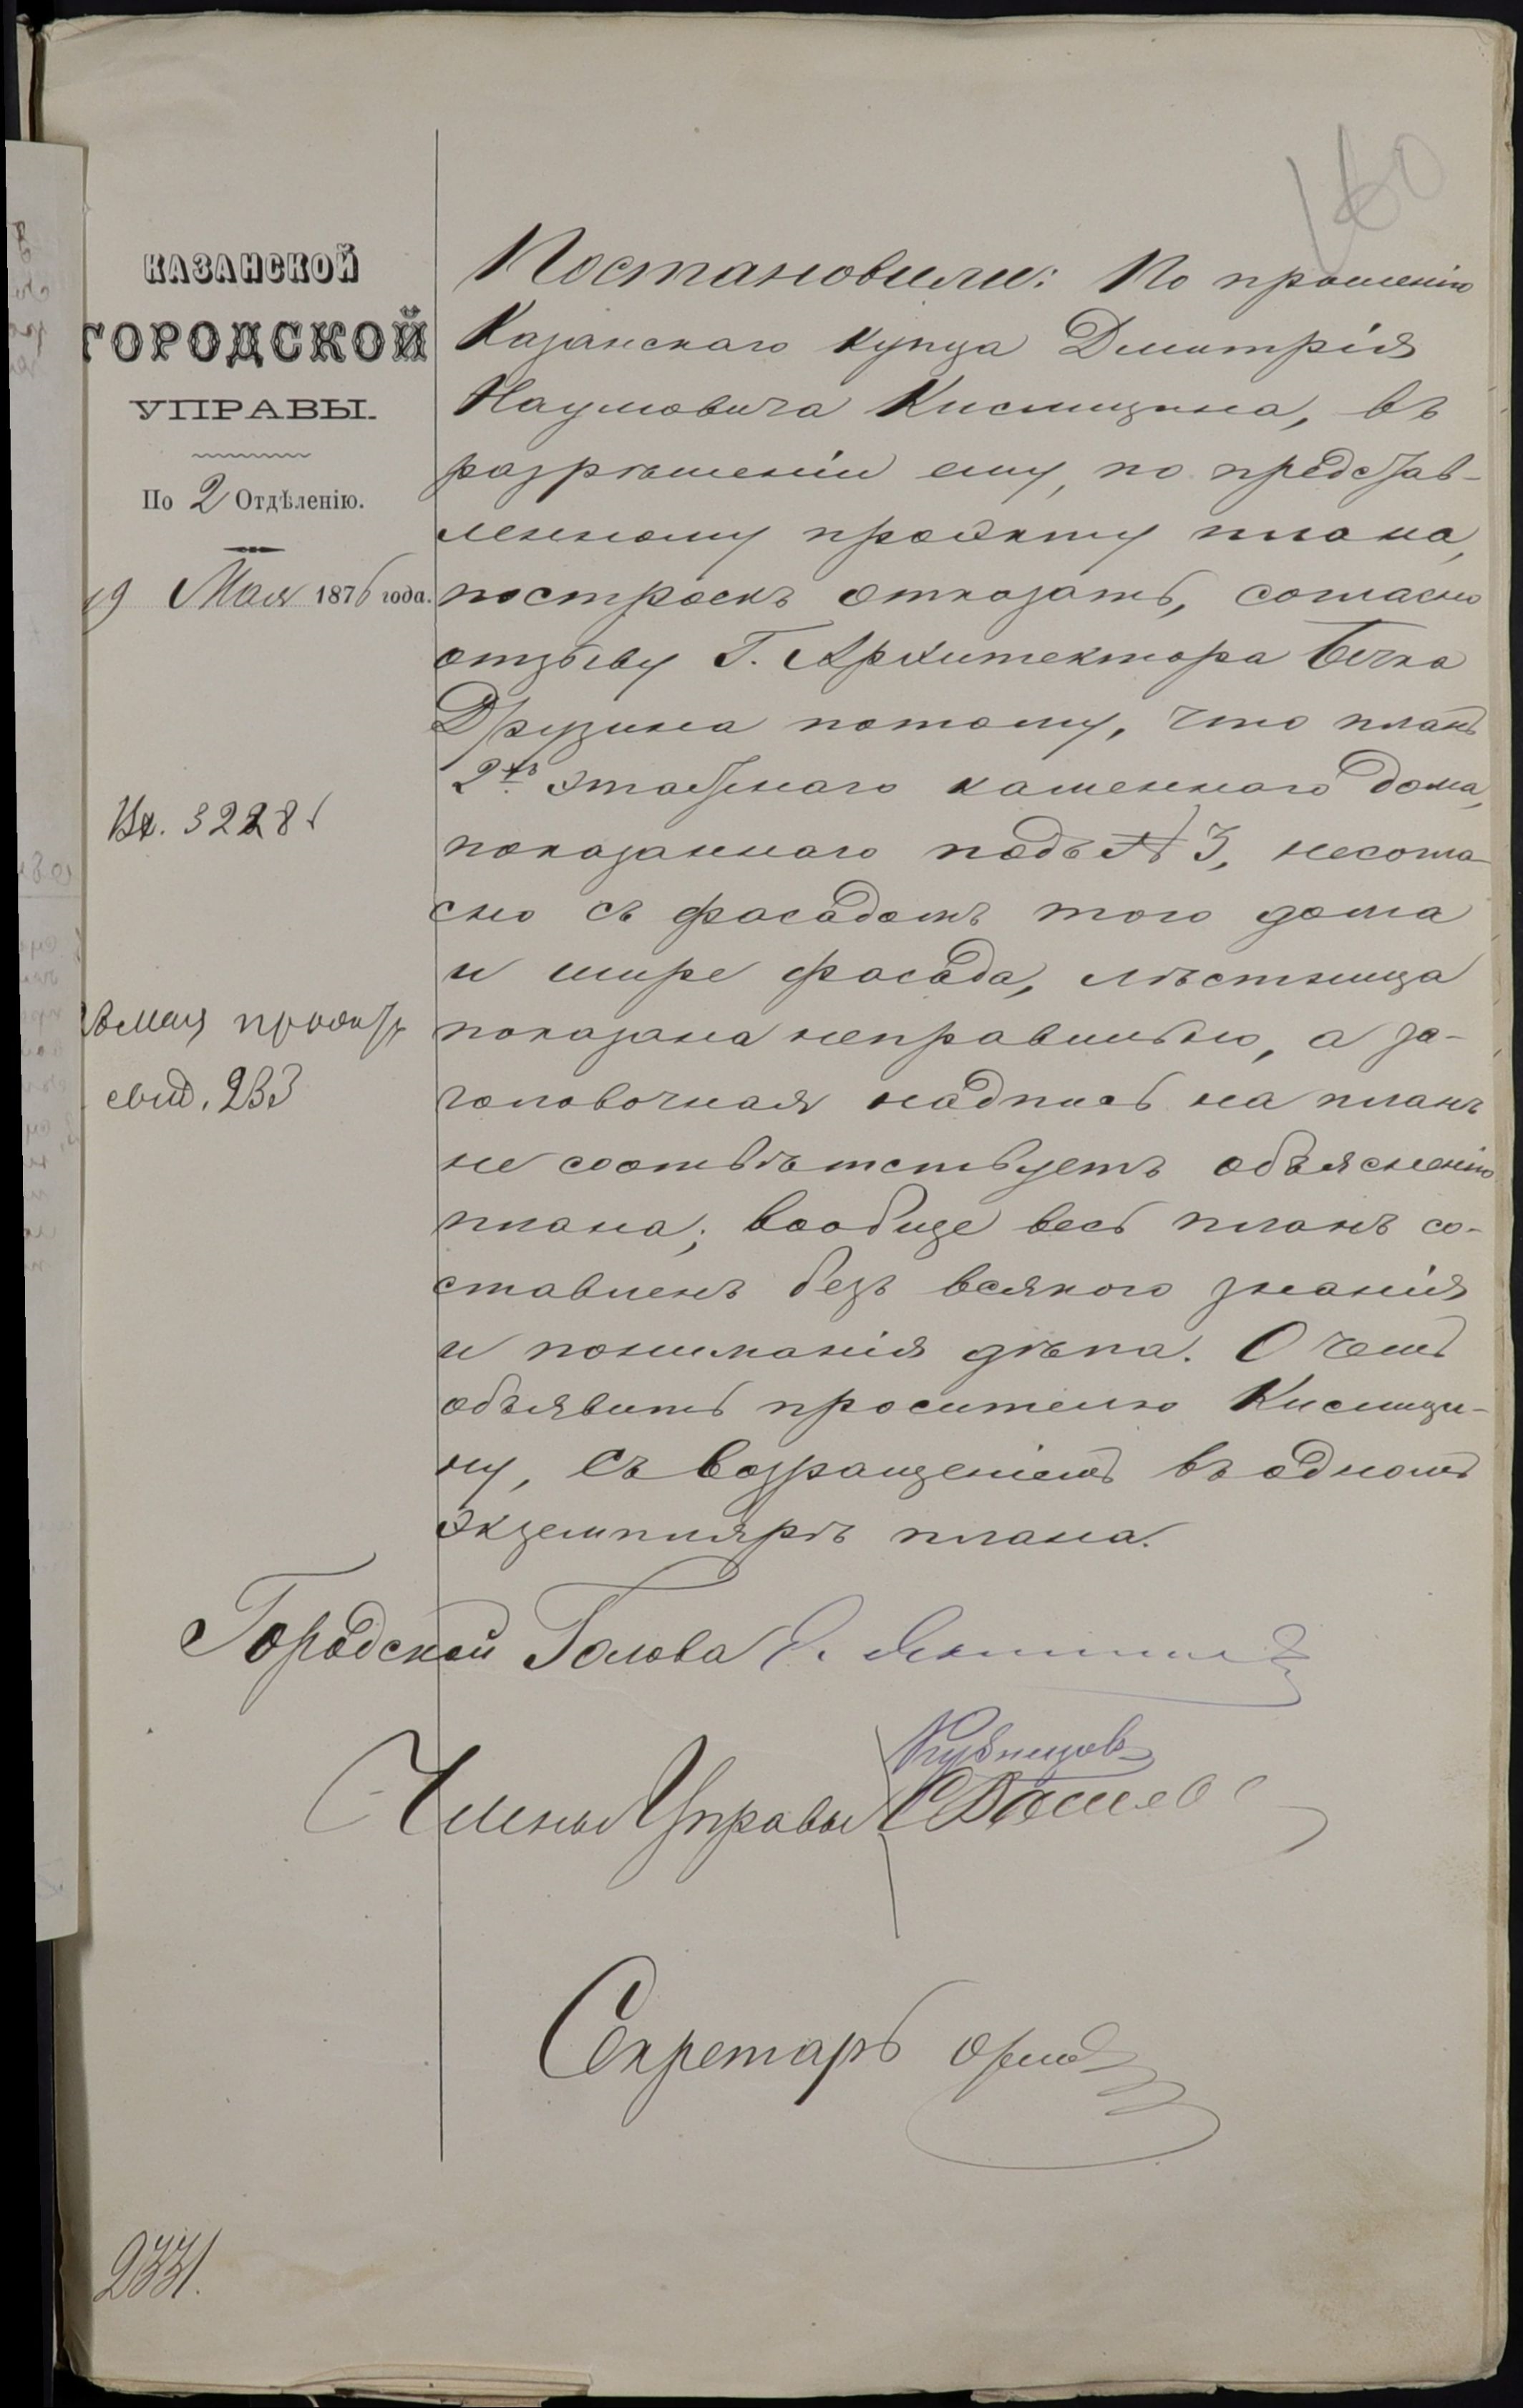 160
КАЗАНСКОЙ
ГОРОДСКОЙ
УПРАВЫ.
По 2 Отдѣленію.
19 Мая 1876 года.
Вх. 3228
свид. 233
Постановили: По прошенію
Казанскаго купца Дмитрія
Наумовича Кислицина, въ
разрѣшеніи ему, по представ-
ленному проэкту плана,
построекъ отказать, согласно
отзыву Г. Архитектора Бечко
Друзина потому, что планъ
2хъ этажнаго каменнаго дома,
показаннаго подъ № 3, несогла-
сно съ фасадомъ того дома
и шире фасада, лѣстница
показана неправильно, а за-
головочная надпись на планѣ
не соотвѣтствуетъ объясненію
плана; вообще весь планъ со-
ставленъ безъ всякого знанія
и пониманія дѣла. О чемъ
объявить просителю Кислици-
ну, съ возращеніемъ въ одномъ
экземплярѣ плана.
Городской Голова
Члены Управы
Кузнецовъ
Секретарь
2331.